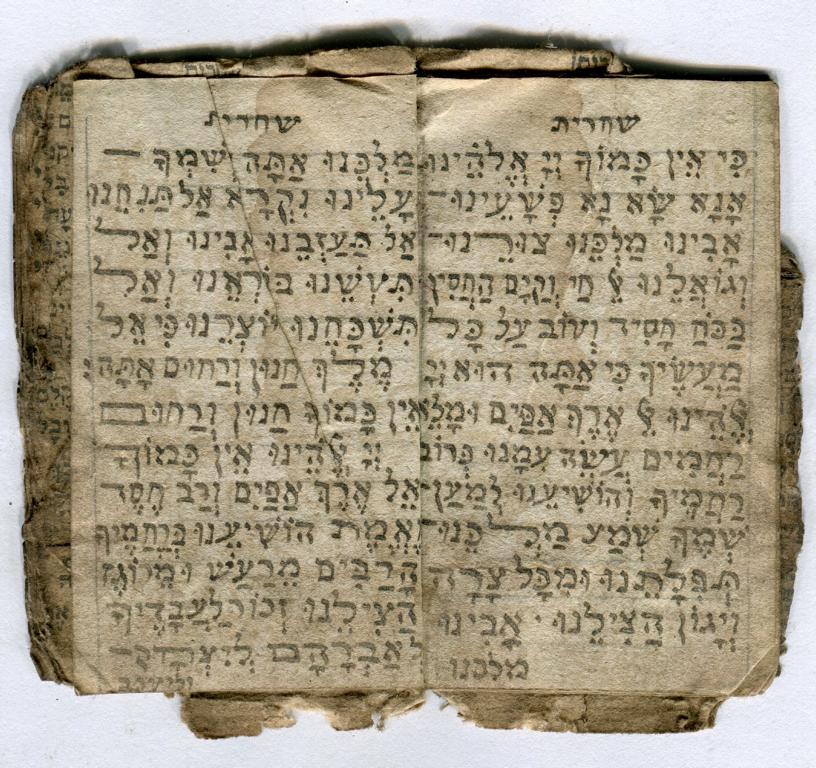 שחרית
כִּי אֵין כָּמוֹךָ יְיָ אֱלֹהֵינוּ
אָנָא שָׂא נָא פְּשָׁעֵינוּ
אָבִינוּ מַלְכֵּנוּ צוּרֵנוּ
וְגוֹאֲלֵנוּ אֵל חַי וְקַיָּם הַחֲסִין
בַּכֹּחַ חָסִיד וְטוֹב עַל כָּל
מַעֲשֶׂיךָ כִּי אַתָּה הוּא יְיָ
אֱלֹהֵינוּ אֵל אֶרֶךְ אַפַּיִם וּמָלֵא
רַחֲמִים עֲשֵׂה עִמָּנוּ כְּרוֹב
רַחֲמֶיךָ וְהוֹשִׁיעֵנוּ לְמַעַן
שְׁמֶךָ שְׁמַע מַלְכֵּנוּ
תְּפִלָּתֵנוּ וּמִכָּל צָרָה
וְיָגוֹן הַצִּילֵנוּ · אָבִינוּ
מלכנו
שחרית
מַלְכֵּנוּ אַתָּה וְשִׁמְךָ
עָלֵינוּ נִקְרָא אַל תַּנִחֵנוּ
אַל תַּעַזְבֵנוּ אָבִינוּ וְאַל
תִּטְּשֵׁנוּ בּוֹרְאֵנוּ וְאַל
תִּשְׁכָּחֵנוּ יוֹצְרֵנוּ כִּי אֵל
מֶלֶךְ חַנוּן וְרַחוּם אָתָּה:
אֵין כָּמוֹךָ חַנוּן וְרַחוּם
יְיָ אֱלֹהֵינוּ אֵין כָּמוֹךָ
אֵל אֶרֶךְ אַפַּיִם וְרַב חֶסֶד
וֶאֱמֶת הוֹשִׁיעֵנוּ בְּרַחֲמֶיךָ
הָרַבִּים מֵרַעַשׁ וּמֵרוֹגֶז
הַצִּילֵנוּ זְכוֹר לַעֲבָדֶיךָ
לְאַבְרָהָם לְיִצְחָק